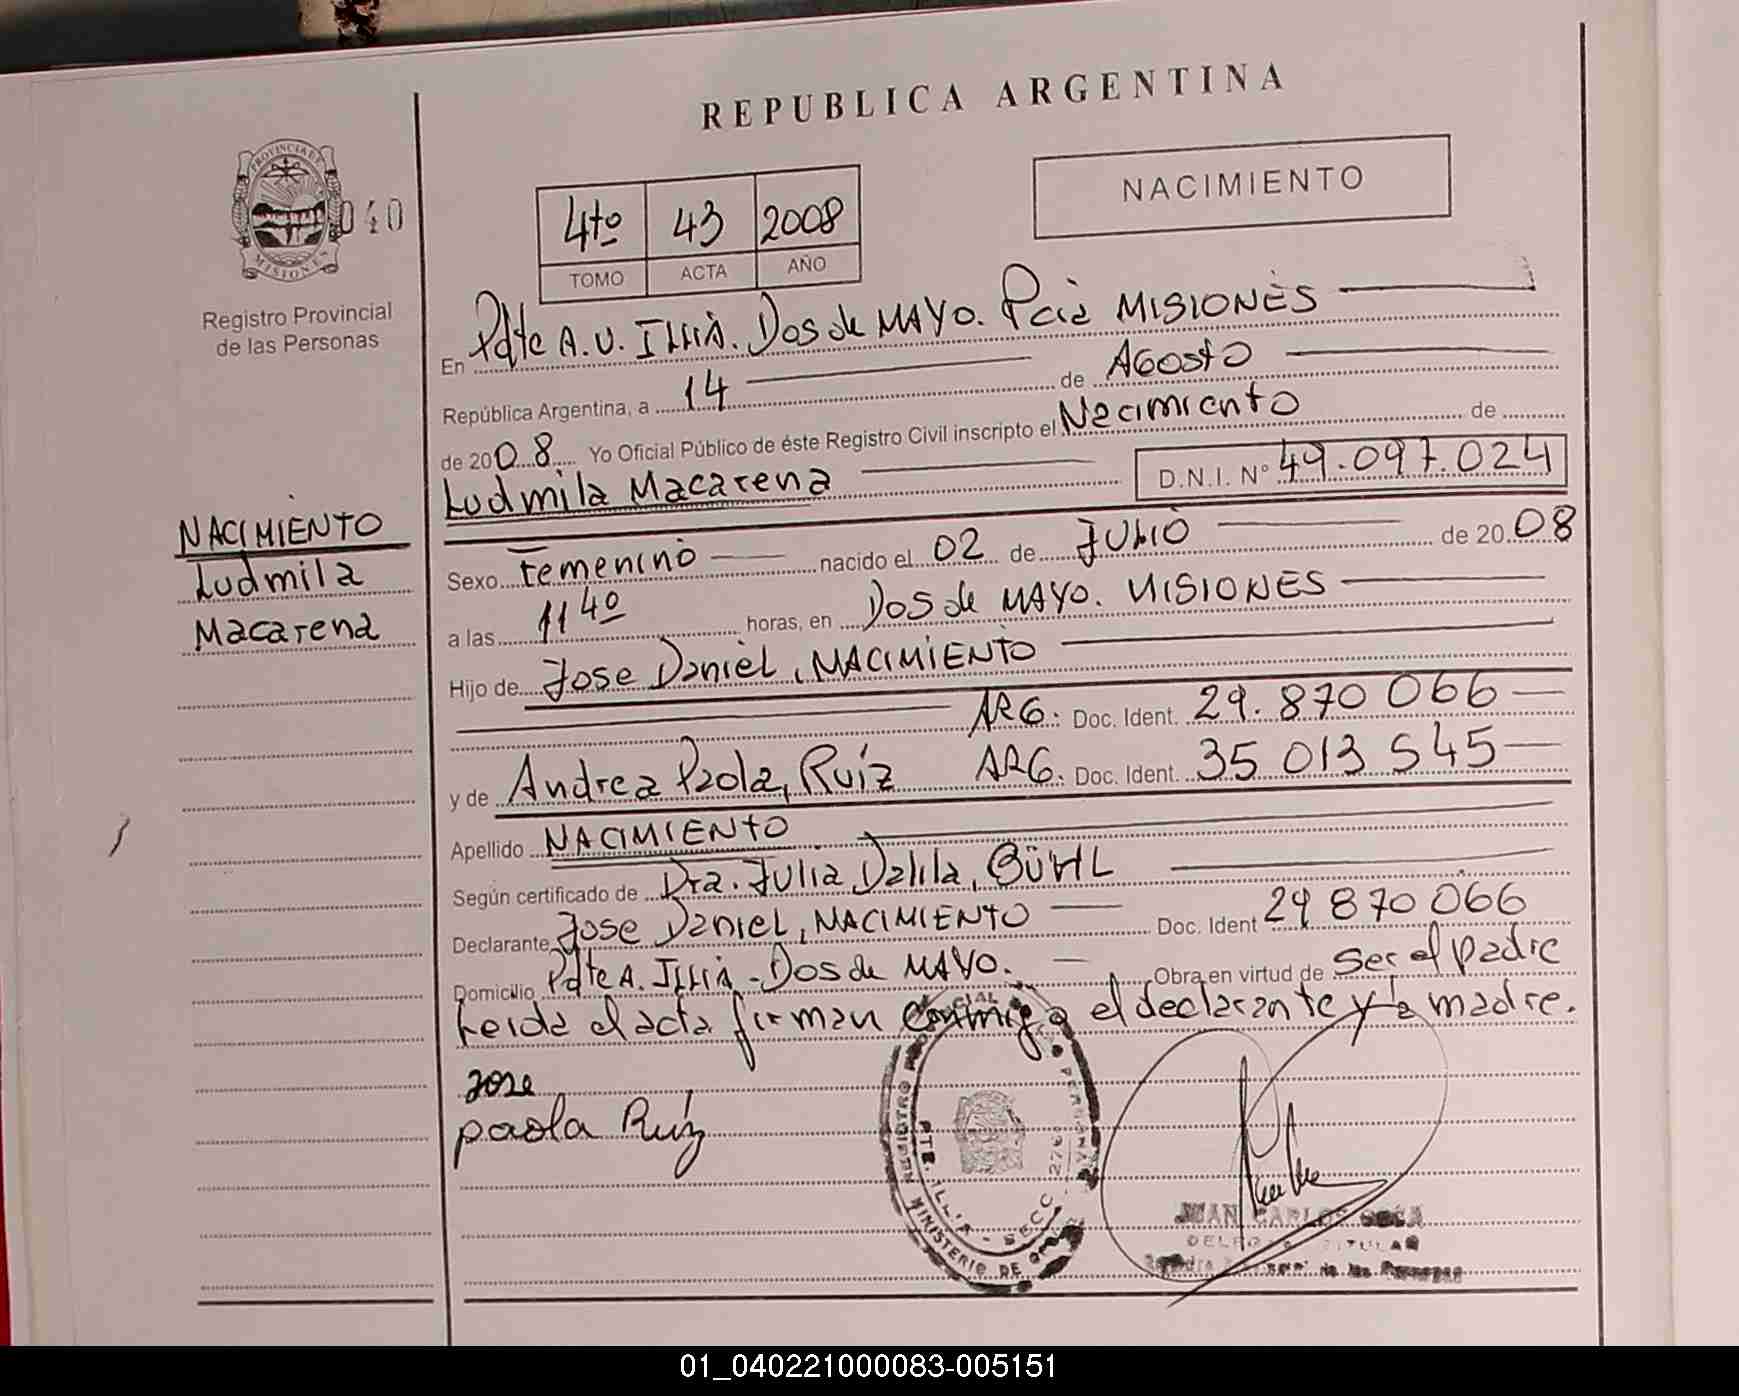 REPUBLICA ARGENTINA
PROVINCIA DE
MISIONES
040
Registro Provincial
de las Personas
4to 43 2008
TOMO ACTA AÑO
NACIMIENTO
En Pdte A.U. ILLIA. Dos de MAYO. Pcia MISIONES
República Argentina, a 14 de AGOSTO
de 2008 Yo Oficial Público de éste Registro Civil inscripto el Nacimiento de
Ludmila Macarena D.N.I. N° 49.097.024
NACIMIENTO
Ludmila
Macarena
Sexo Femenino nacido el 02 de JULIO de 2008
a las 11 40 horas, en Dos de MAYO. MISIONES
Hijo de Jose Daniel, NACIMIENTO
ARG. Doc. Ident. 29.870 066
y de Andrea Paola, Ruíz ARG. Doc. Ident. 35 013 545
Apellido NACIMIENTO
Según certificado de Dra. Julia Dalila, BÜHL
Declarante Jose Daniel, NACIMIENTO Doc. Ident 29 870 066
Domicilio Pdte A. ILLIA - Dos de MAYO. Obra en virtud de Ser el padre
Leida el acta firman conmigo el declarante y la madre.
Jose
paola Ruiz
PTE. ILLIA - SECC. 276
MINISTERIO DE
JUAN CARLOS
TITULAR
de las Personas
01_040221000083-005151